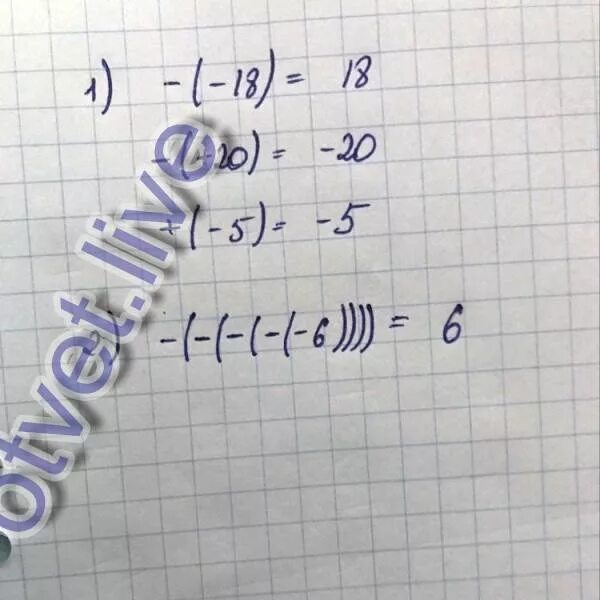 1) -(-18) = 18
(-20) = -20
+(-5) = -5
) -(-(-(-(-6)))) = 6
otvet.live